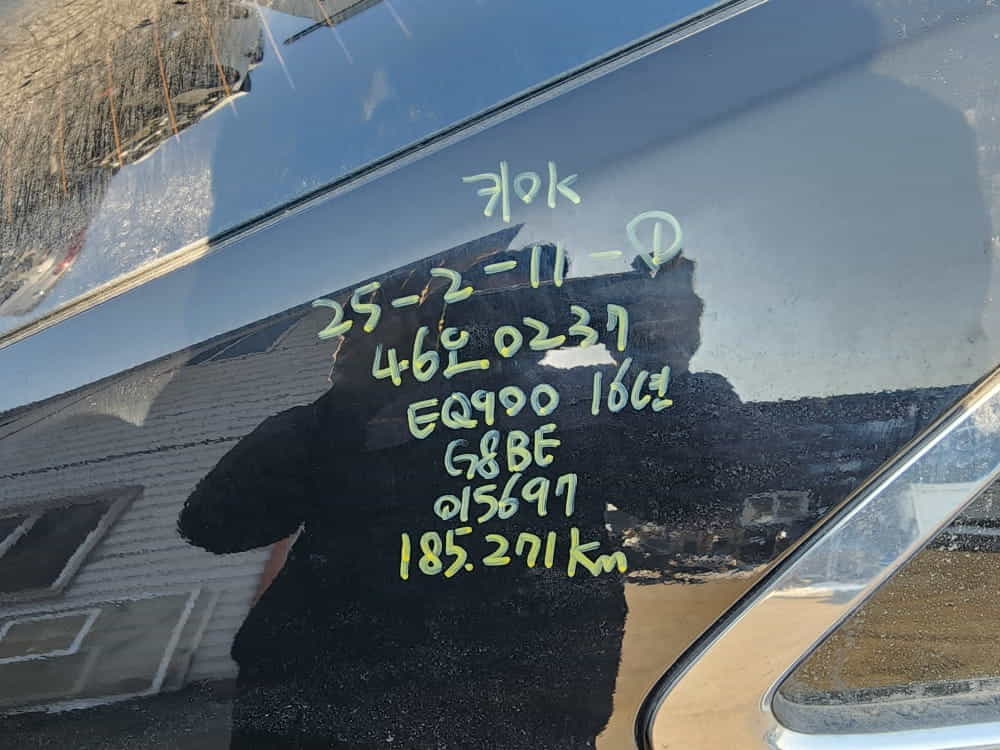 키OK
25-2-11-①
46오 0237
EQ900 16년
G8BE
015697
185.271Km